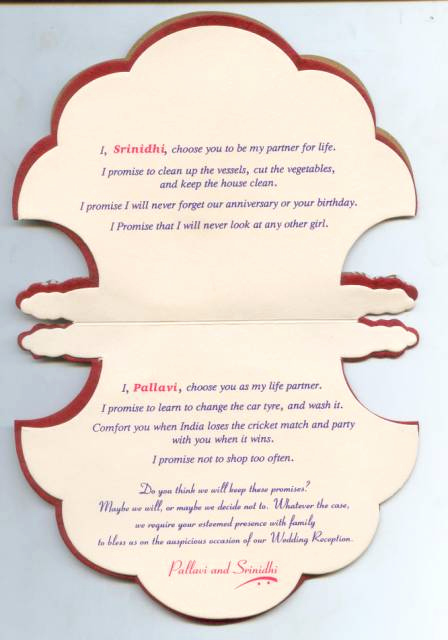 I, Srinidhi, choose you to be my partner for life.
I promise to clean up the vessels, cut the vegetables,
and keep the house clean.
I promise I will never forget our anniversary or your birthday.
I Promise that I will never look at any other girl.
I, Pallavi, choose you as my life partner.
I promise to learn to change the car tyre, and wash it.
Comfort you when India loses the cricket match and party
with you when it wins.
I promise not to shop too often.
Do you think we will keep these promises?
Maybe we will, or maybe we decide not to. Whatever the case,
we require your esteemed presence with family
to bless us on the auspicious occasion of our Wedding Reception.
Pallavi and Srinidhi